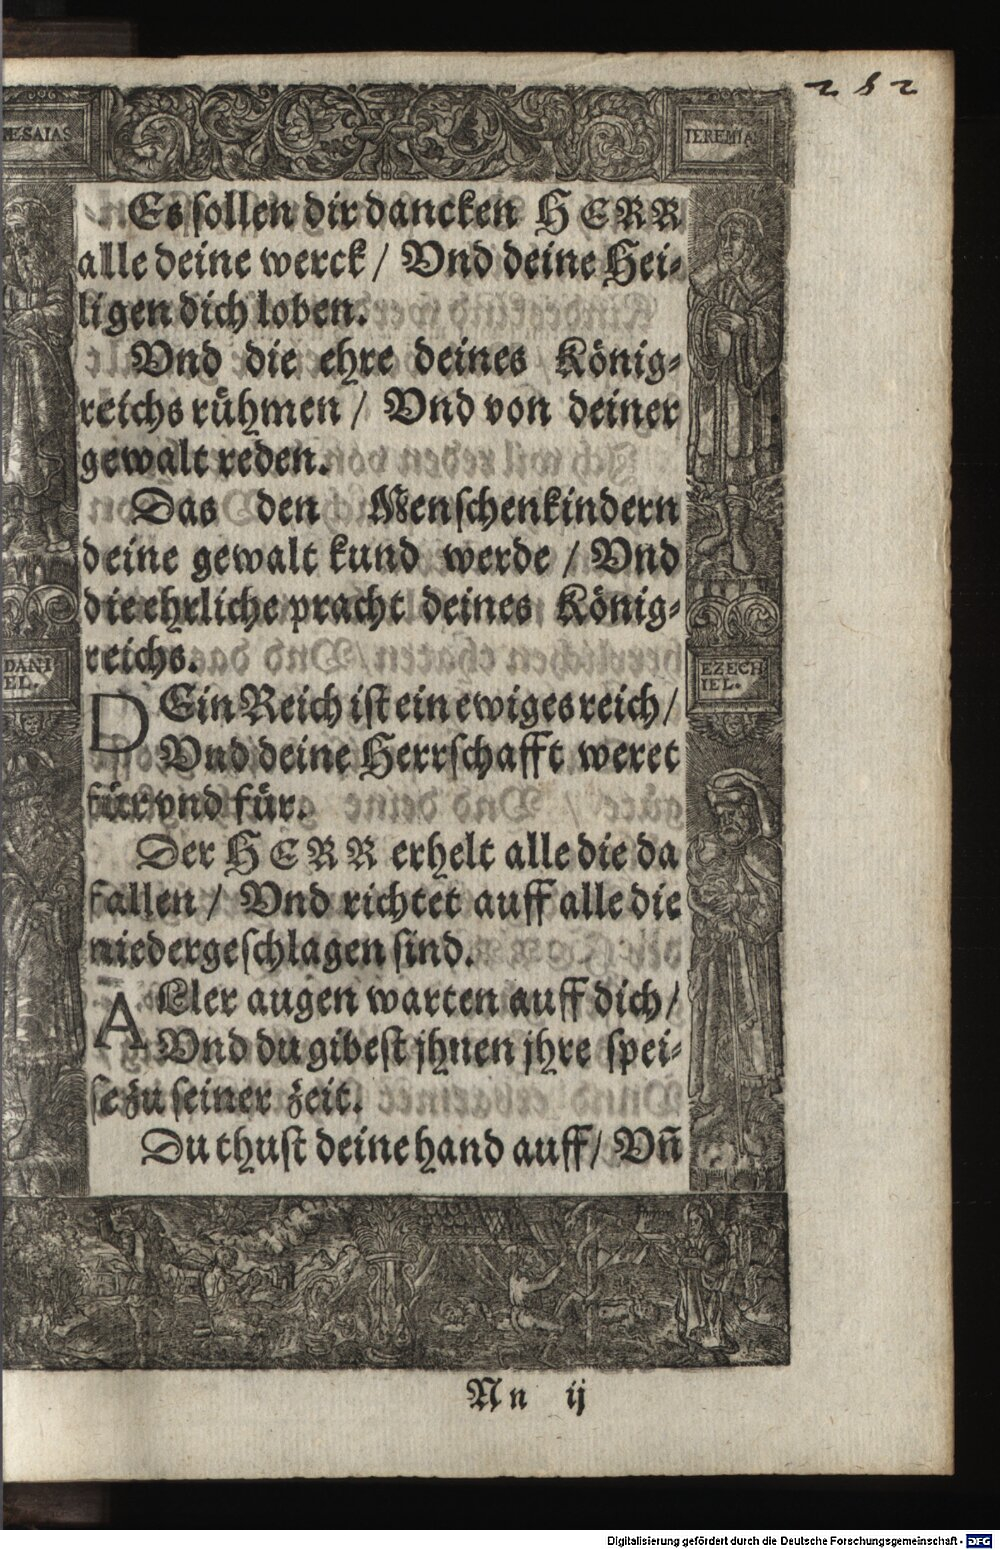 252
ESAIAS
IEREMIA
Es sollen dir dancken HERR
alle deine werck / Vnd deine Hei-
ligen dich loben.
Vnd die ehre deines König-
reichs rühmen / Vnd von deiner
gewalt reden.
Das den Menschenkindern
deine gewalt kund werde / Vnd
die ehrliche pracht deines König-
reichs.
DEin Reich ist ein ewiges reich /
Vnd deine Herrschafft weret
für vnd für.
Der HERR erhelt alle die da
fallen / Vnd richtet auff alle die
niedergeschlagen sind.
ALler augen warten auff dich /
Vnd du gibest jhnen jhre spei-
se zu seiner zeit.
Du thust deine hand auff / Vn̄
DANI
EL.
EZECH
IEL.
Nn ij
Digitalisierung gefördert durch die Deutsche Forschungsgemeinschaft - DFG